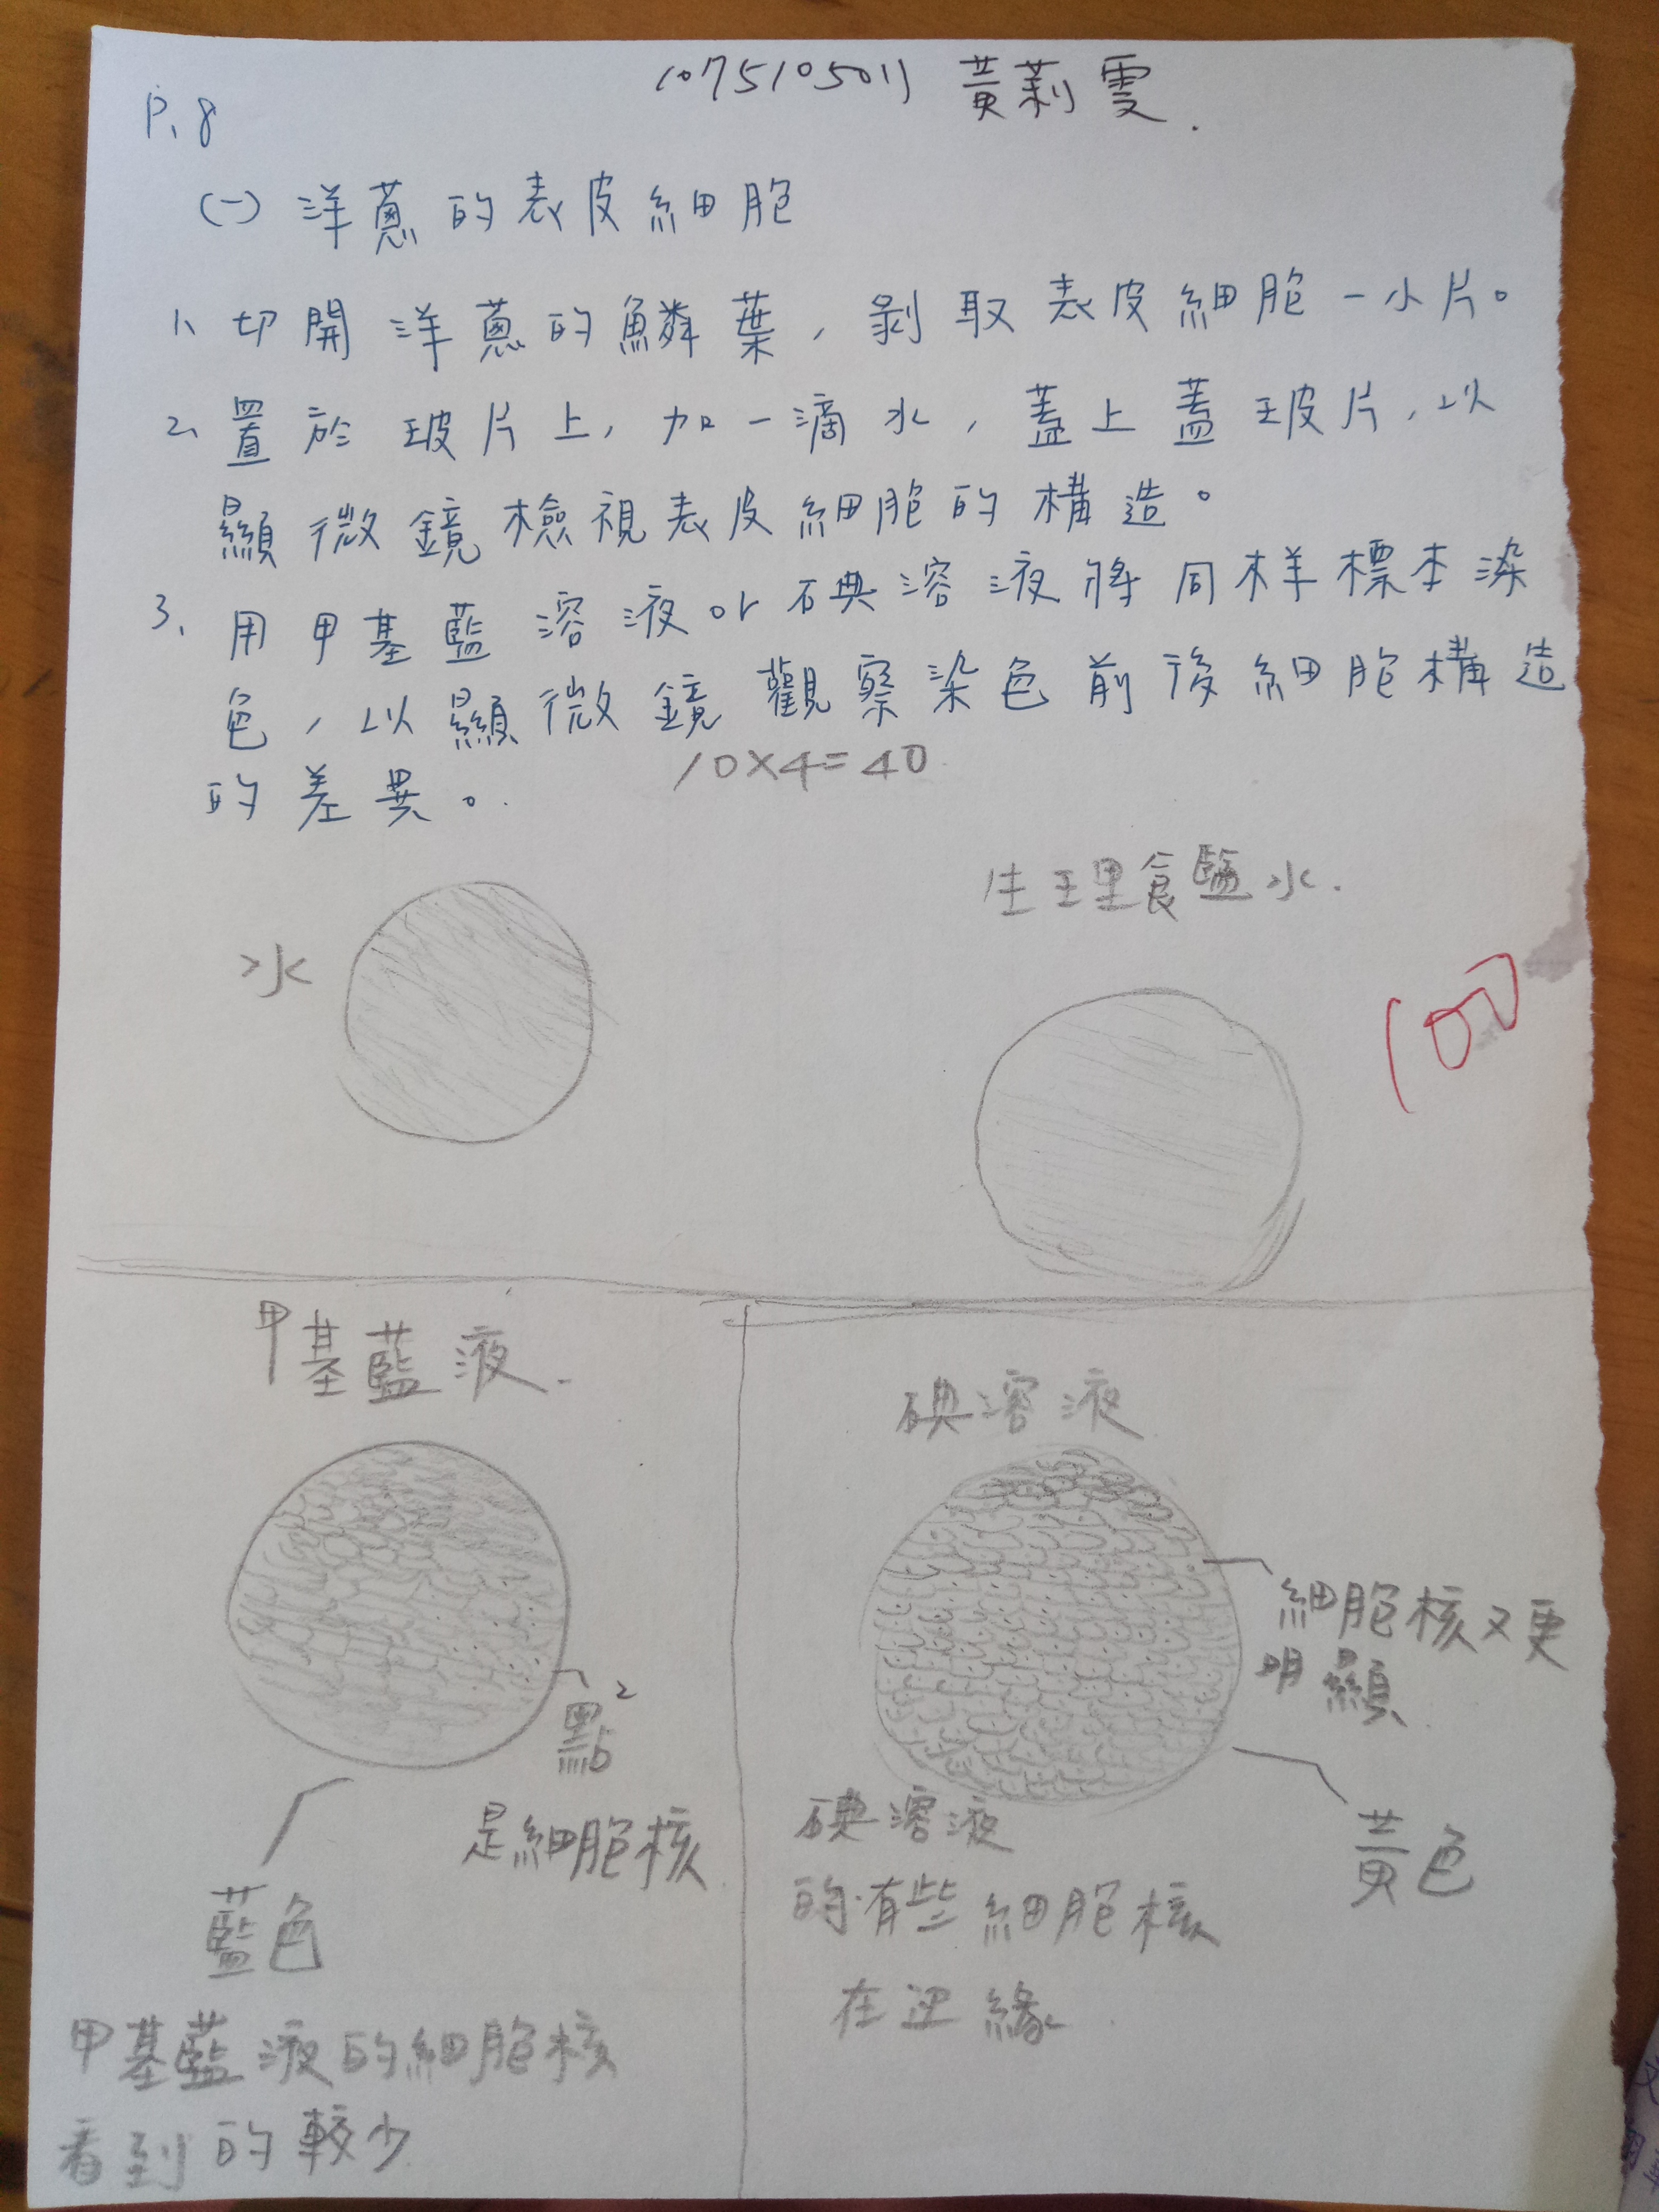 1075105011 黃莉雯.
P.8
(一)洋蔥的表皮細胞
1、切開洋蔥的鱗葉,剝取表皮細胞一小片。
2、置於玻片上,加一滴水,蓋上蓋玻片,以
顯微鏡檢視表皮細胞的構造。
3、用甲基藍溶液or碘溶液將同样標本染
色,以顯微鏡觀察染色前後細胞構造
的差異。
10×4=40
生理食鹽水.
水
100
甲基藍液
碘溶液
細胞核又更
明顯
點2
是細胞核
藍色
黃色
碘溶液
的有些細胞核
在边緣
甲基藍液的細胞核
看到的較少